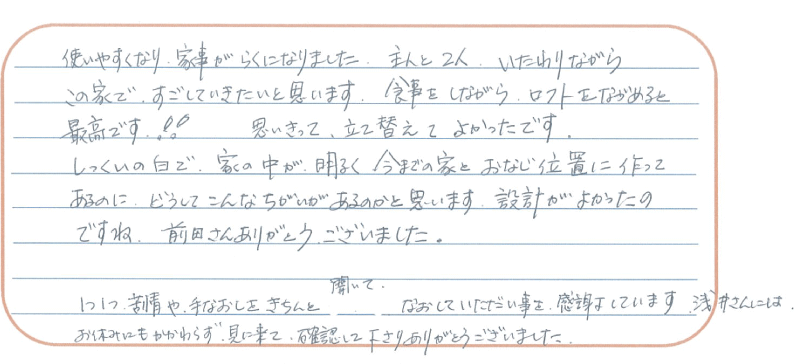 使いやすくなり、家事がらくになりました。主人と2人、いたわりながら
この家で、すごしていきたいと思います。食事をしながら、ロフトをながめると
最高です。!! 思いきって、立て替えてよかったです。
しっくいの白で、家の中が、明るく今までの家とおなじ位置に作って
あるのに、どうしてこんなちがいがあるのかと思います。設計がよかったの
ですね、前田さんありがとうございました。
1つ1つ、苦情や、手なおしをきちんと聞いて、なおしていただい事を、感謝しています。浅井さんには、
お休みにもかかわらず、見に来て、確認して下さりありがとうございました。